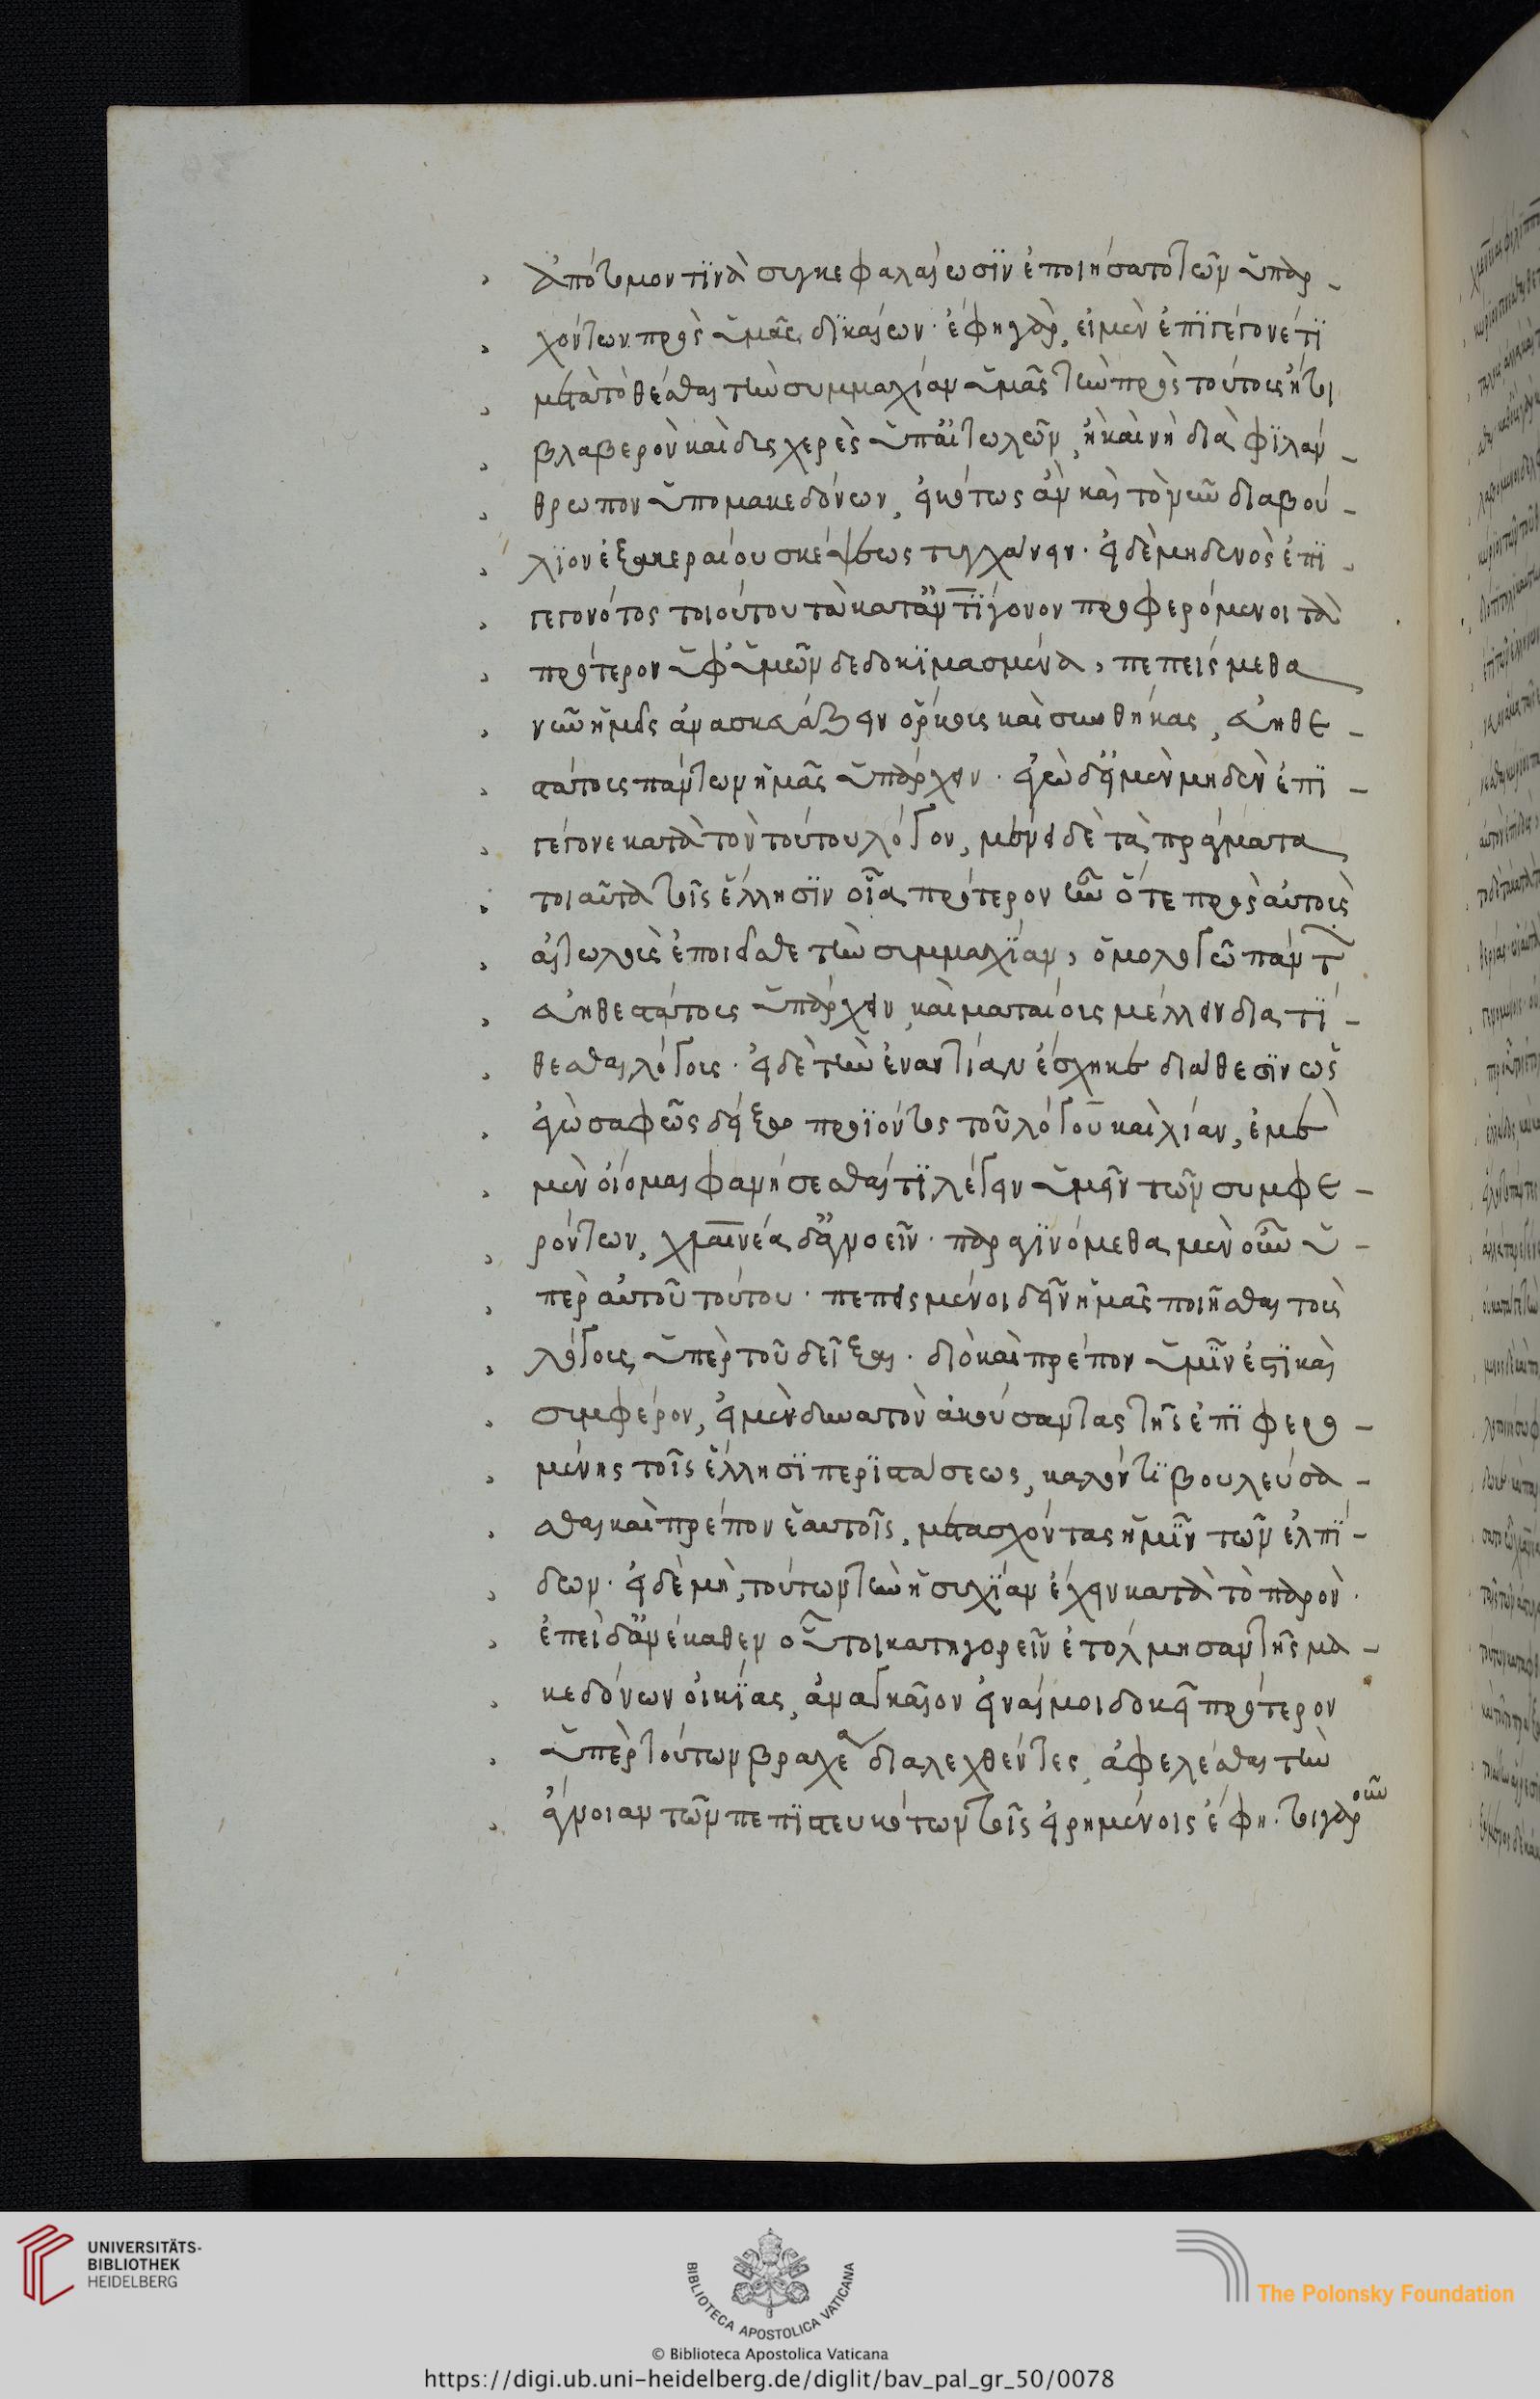 ἀπότομον τινὰ συγκεφαλαίωσϊν ἐποιήσατο τῶν ὑπαρ-
χόντων πρὸς ὑμᾶς δϊκαίων· ἔφη γὰρ, εἰ μὲν ἐπϊγέγονέ τϊ
μετὰ τὸ θέσθαι τὴν συμμαχίαν ὑμᾶς τὴν πρὸς τούτους ἤτοι
βλαβερὸν καὶ δυσχερὲς ὑπ' αἰτωλῶν, ἢ καὶ νὴ δία φϊλάν-
θρωπον ὑπο μακεδόνων, εἰκότως ἂν καὶ τὸ νῦν διαβού-
λϊον ἐξ ἀκεραίου σκέψεως τυγχάνειν· εἰ δὲ μηδενὸς ἐπϊ-
γεγονότος τοιούτου τὰ κατ' ἀντϊγονον προφερόμενοι τὰ
πρότερον ὑφ' ὑμῶν δεδοκϊμασμένα, πεπείσμεθα
νῦν ἡμεῖς ἀνασκευάζειν ὅρκους καὶ συνθήκας, εὐηθε-
στάτους πάντων ἡμᾶς ὑπάρχειν· εἰ δὲ μὲν μηδὲν ἐπϊ-
γέγονε κατὰ τὸν τούτου λόγον, μένει δὲ τὰ πράγματα
τοιαῦτα τοῖς ἕλλησϊν οἷα πρότερον ἦν ὅτε πρὸς αὐτοὺς
αἰτωλοὺς ἐποιεῖσθε τὴν συμμαχϊαν, ὁμολογῶ πάντ
εὐηθεστάτους ὑπάρχειν, καὶ ματαίους μέλλειν διατϊ-
θεσθαι λόγους· εἰ δὲ τὴν ἐναντίαν ἔσχηκε διάθεσϊν ὡς
ἐγὼ σαφῶς δείξω προϊόντος τοῦ λόγου καὶ λίαν, ἐμὲ
μὲν οἴομαι φανήσεσθαί τϊ λέγειν ὑμῖν τῶν συμφε-
ρόντων, χλαινέα δ' ἀγνοεῖν· παραγϊνόμεθα μὲν οὖν ὑ-
πὲρ αὐτοῦ τούτου· πεπεισμένοι δεῖν ἡμᾶς ποιῆσθαι τοὺς
λόγους ὑπὲρ τοῦ δεῖξαι· διὸ καὶ πρέπον ὑμῖν ἐστϊ καὶ
συμφέρον, εἰ μὲν δυνατὸν ἀκούσαντας τῆς ἐπϊφερο-
μένης τοῖς ἕλλησϊ περϊστάσεως, καλόν τϊ βουλεύσα-
σθαι καὶ πρέπον ἑαυτοῖς, μετασχόντας ἡμῖν τῶν ἐλπϊ-
δων· εἰ δὲ μὴ, τούτων τὴν ἡσυχϊαν ἔχειν κατὰ τὸ παρὸν·
ἐπεὶ δ' ἀνέκαθεν οὗτοι κατηγορεῖν ἐτόλμησαν τῆς μα-
κεδόνων οἰκίας, ἀναγκαῖον εἶναί μοι δοκεῖ πρότερον
ὑπὲρ τούτων βραχέα διαλεχθέντες, ἀφελέσθαι τὴν
ἄγνοιαν τῶν πεπϊστευκότων τοῖς εἰρημένοις ἔφη· τοιγαρ οῦν
UNIVERSITÄTS-
BIBLIOTHEK
HEIDELBERG
BIBLIOTECA APOSTOLICA VATICANA
The Polonsky Foundation
© Biblioteca Apostolica Vaticana
https://digi.ub.uni-heidelberg.de/diglit/bav_pal_gr_50/0078